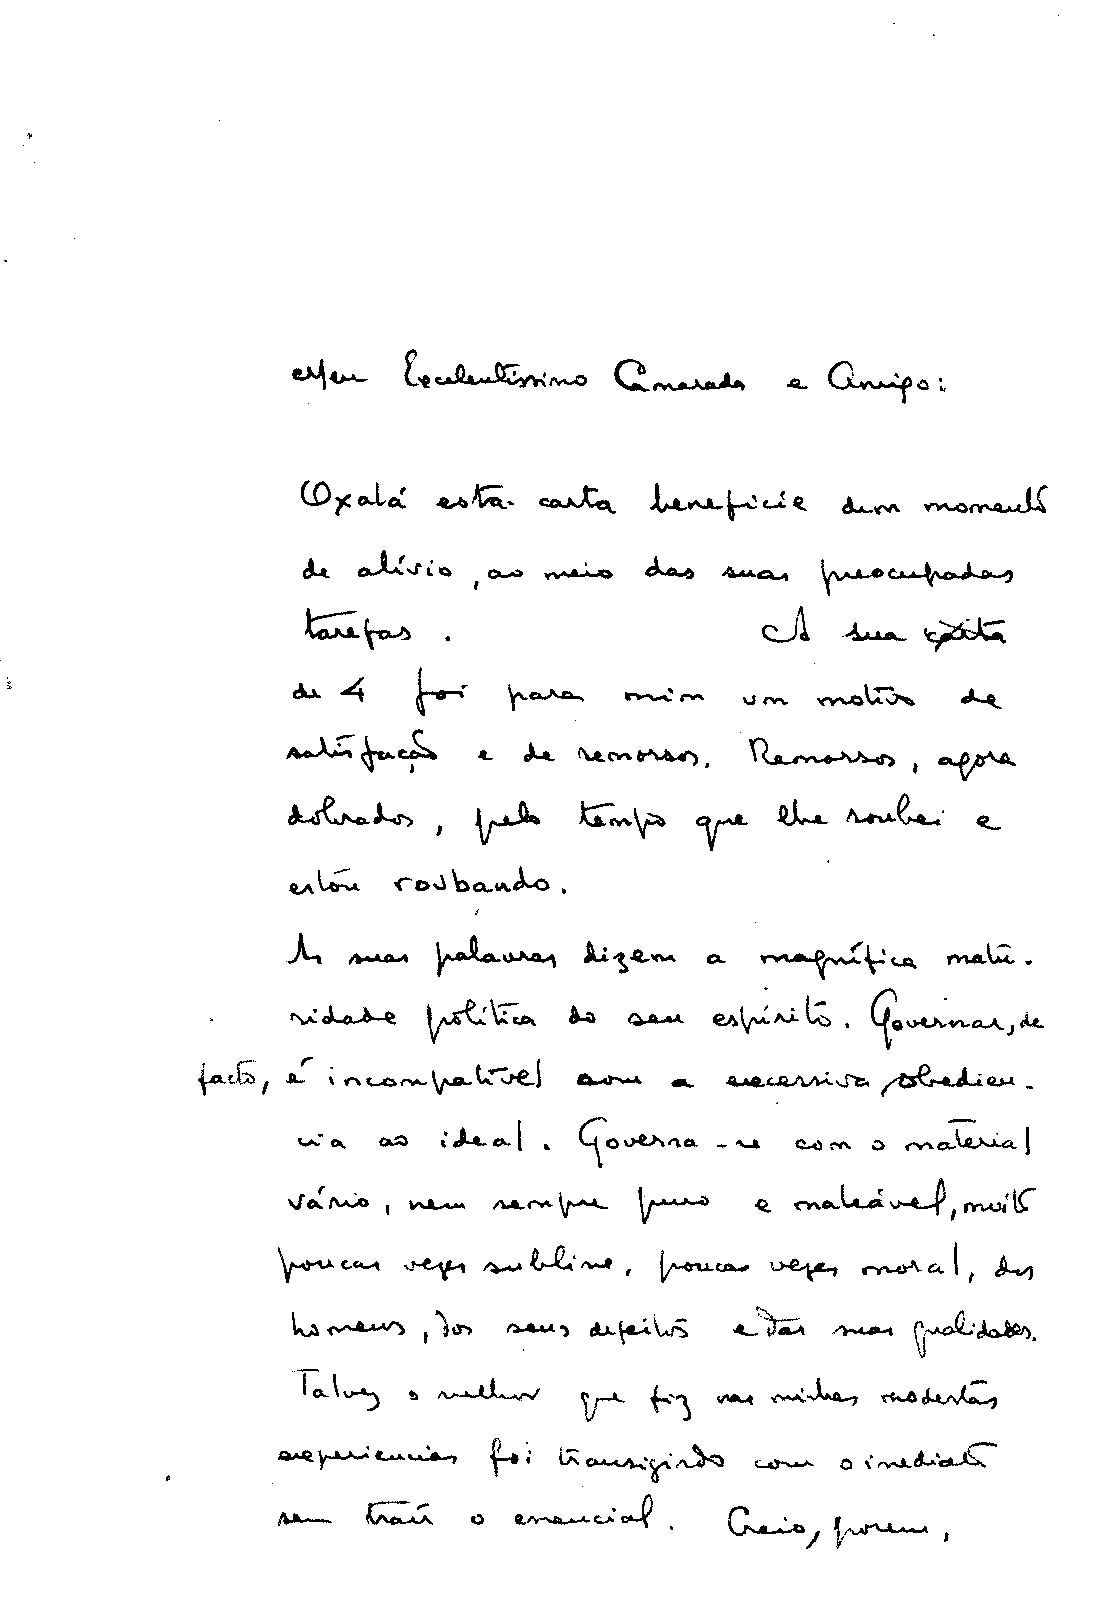 Meu Excelentíssimo Camarada e Amigo:
Oxalá esta carta beneficie dum momento
de alívio, ao meio das suas preocupadas
tarefas. A sua carta
de 4 foi para mim um motivo de
satisfação e de remorsos. Remorsos, agora
dobrados, pelo tempo que lhe roubei e
estou roubando.
As suas palavras dizem a magnífica matu-
ridade política do seu espírito. Governar, de
facto, é incompatível com a excessiva obediên-
cia ao ideal. Governa-se com o material
vário, nem sempre puro e maleável, muito
poucas vezes sublime, poucas vezes moral, dos
homens, dos seus defeitos e das suas qualidades.
Talvez o melhor que fiz nas minhas modestas
experiencias foi transigindo com o imediato
sem trair o essencial. Creio, porem,